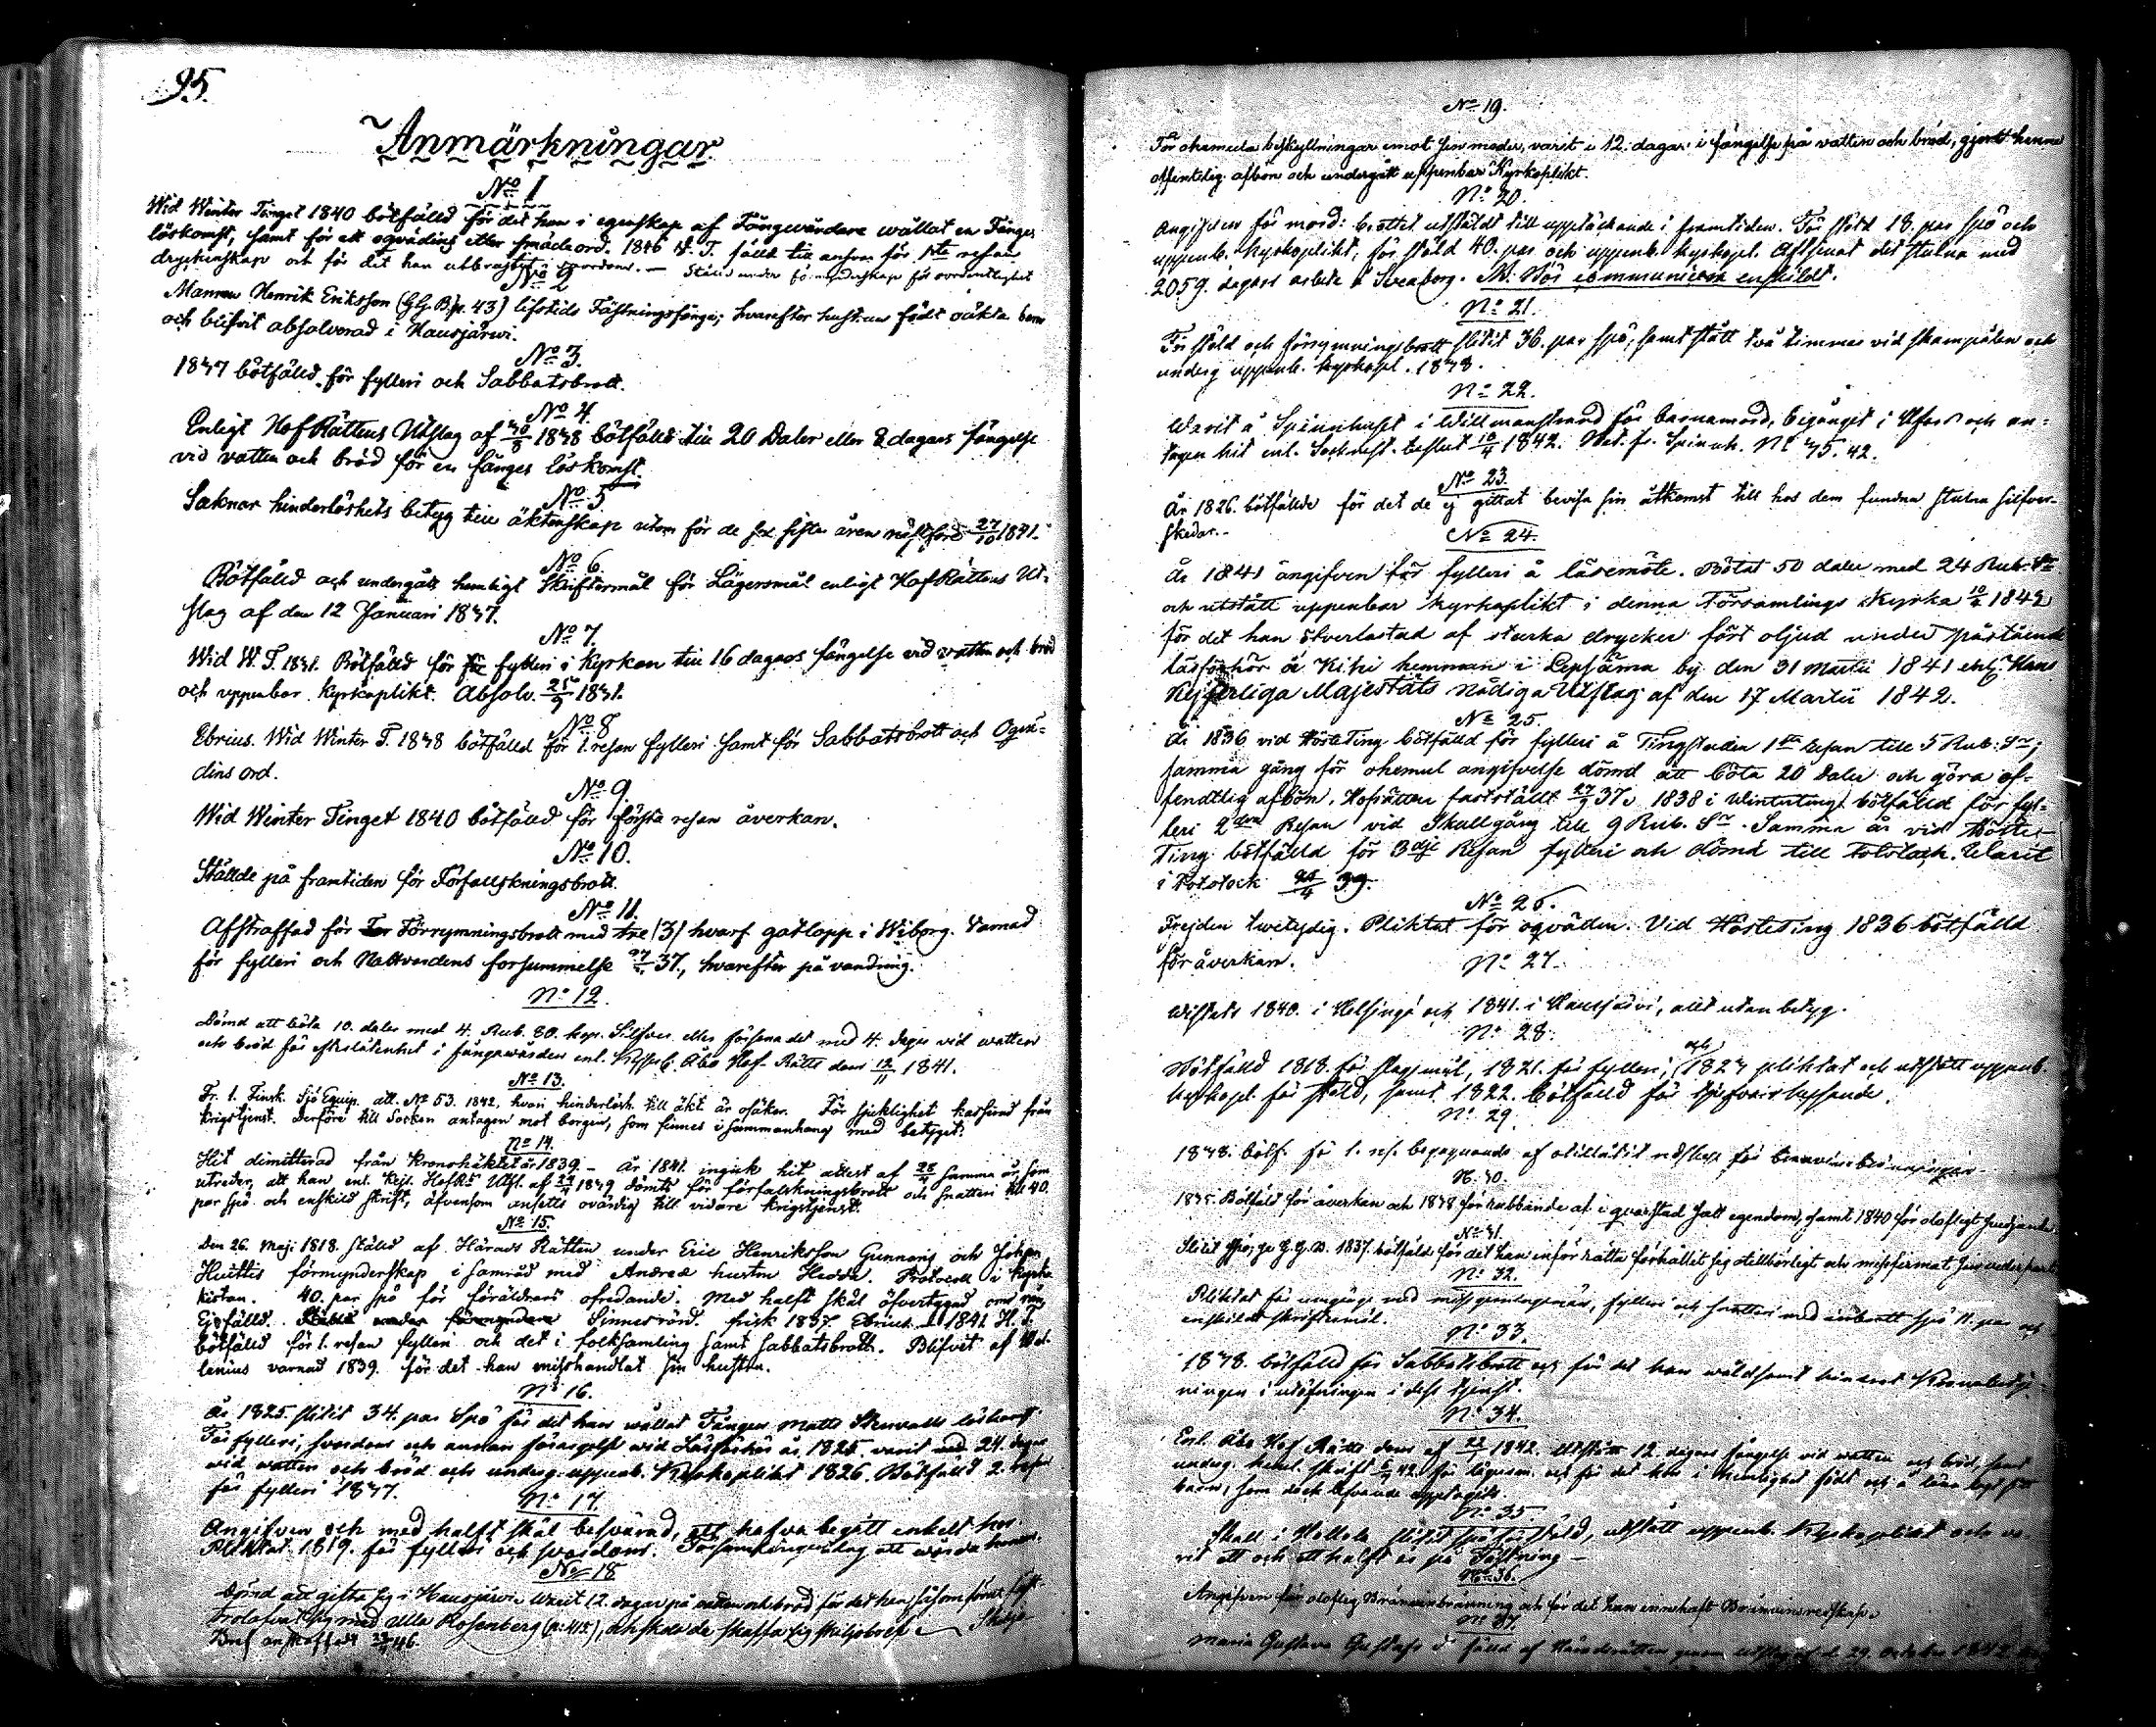 95.
Anmärkningar
No 1
Wid Winter Tinget 1840 bötfälld för det han i egenskap af Fångwårdare wållat en Fånges
löskomst, samt för ett oqvädins eller smädeord. 1846 W. T. fälld till ansvar för 1sta resan
dryckenskap och för det han utbrustit i svordom. — Ställd under förmynderskap för overksamhet
No 2
Mannen Henrik Eriksson (G.G.B. p. 43) lifstids Fästningsfånge; hvarefter hustrun födt oäkta barn
och blifvit absolverad i Hausjärwi.
No 3.
1837 bötfälld för fylleri och Sabbatsbrott.
No 4
Enligt Hof Rättens Utslag af 1838 bötfälld till 20 Daler eller 8 dagars fängelse
vid vatten och bröd för en fånges löskomst.
No 5
Saknar hinderlöshets betyg till äktenskap utom för de sex sista åren näst före 27/10 1841.
No 6.
Bötfälld och undergått hemligt Skriftermål för Lägersmål enligt Hof Rättens Ut-
slag af den 12 Januari 1837.
No 7.
Wid W. T. 1831. Bötfälld för för fylleri i Kyrkan till 16 dagars fängelse vid vatten och bröd
och uppenbar Kyrkoplikt. Absolv. 25/9 1831.
No 8
Ebrius. Wid Winter T. 1838 bötfälld för 1. resan fylleri samt för Sabbatsbrott och Oqvä-
dins ord.
No 9
Wid Winter Tinget 1840 bötfälld för första resan åverkan.
No 10.
Ställde på framtiden för Förfalskningsbrott.
No 11.
Afstraffad för Förrymningsbrott med tre (3) hvarf gatlopp i Wiborg. Varnad
för fylleri och Nattvardens försummelse 37., hvarefter på vandring.
No 12.
Dömd att böta 10. daler med 4. Rub. 80. kop. Silfver eller försona det med 4. dagar vid watten
och bröd för efterlåtenhet i fångawården enl. Kejserl. Åbo Hof-Rätts dom 12/11 1841.
No 13.
Fr. 1. Finsk. Sjö Equip. att. No 53. 1842, hvari hinderlösh. till äkt. är osäker. För sjuklighet kasserad från
krigstjenst. Derföre till Socken antagen mot borgen, som finnes i sammanhang med betyget.
No 14.
Hit dimitterad från Kronohäktet år 1839. — År 1841. ingick hit attest af 28/ samma år, som
utreder, att han enl. Kejs. HofRs Utsl. af 1839 dömts för förfalskningsbrott och snatteri till 40.
par spö och enskild skrift, äfvensom ansetts ovärdig till vidare krigstjenst.
No 15.
Den 26. Maji 1818. ställd af Härads Rätten under Eric Henriksson Gunnars och Johan
Huittis förmynderskap i samråd med Andreæ hustru Hedda. Protocoll i Kyrko
kistan. 40. par spö för föräldrars ofredande. Med halft skäl öfvertygad om rån
Ej fälld. Ställd under förmyndare Sinnesrörd. frisk 1837. Ebrius. 1841 H. T.
bötfälld för 1. resan fylleri och det i folksamling samt sabbatsbrott. Blifvit af
lenius varnad 1839. för det han misshandlat sin hustru.
No 16.
År 1825. slitit 34. par Spö för det han wållat Fången Matts Stenvalls löskomst
För fylleri, svordom och annan förargelse wid Läsförhör år 1825. varit med 24. dagar
wid watten och bröd och underg. uppenb. Kyrkoplikt 1826. Bötfälld 2. resan
för fylleri 1837.
No 17.
Angifven och med halft skäl besvärad, att hafva begått enkelt hor.
Pliktat 1819. för fylleri och svordom. Församlingens slag att wårda honom.
No 18
Dömd att gifta sig i Hausjärvi. Warit 12. dagar på vatten och bröd för det han såsom förut
trolofvat sig med Ulla Rosenberg (p. 415), älskade skaffa sig skiljobref. — Skiljo-
bref anskaffadt 46.
No 19.
För ohemula beskyllningar emot sin moder, varit i 12. dagar i fängelse på vatten och bröd, gjort henne
offentelig afbön och undergått uppenbar Kyrkoplikt.
No 20.
Angifven för mord: brottet utstäldt till upptäckande i framtiden. För stöld 18. par spö och
uppenb. Kyrkoplikt, för stöld 40. par och uppenb. kyrkopl. Aftjenat det stulna med
2059. dagars arbete å Sveaborg. Nt. Bör communicera enskildt.
No 21.
För stöld och förrymningsbrott slitit 36. par spö, samt stått två timmar vid skampålen och
underg. uppenb. kyrkopl. 1838.
No 22.
Warit å Spinnhuset i Willmanstrand för barnamord, begånget i Ulfsö och an-
tagen hit enl. Sockenst. beslut 10/4 1842. Att. fr. Spinnh. No 35. 42.
No 23.
År 1826. bötfälld för det de ej gittat bevisa sin åtkomst till hos dem fundna stulna silfver-
skedar.
No 24.
År 1841 angifven för fylleri å läsemöte. Bötat 50 daler med 24 Rub. Sr
och utstått uppenbar kyrkoplikt i denna Församlings Kyrka 10/4 1842
för det han öfverlastad af starka drycker fört oljud under påstående
läsförhör å Kihi hemman i Lepsäma by den 31 Martii 1841 enl. Hans
Kejserliga Majestäts Nådiga Utslag af den 17 Martii 1842.
No 25.
År 1836 vid HösteTing bötfälld för fylleri å Tingstaden 1sta Resan till 5 Rub. Sr;
samma gång för ohemul angifvelse dömd att böta 20 Daler och göra of-
fendtlig afbön. Hofrätten fastställt 27/ 37. 1838 i Winterting bötfälld för fyl-
leri 2dra Resan vid Skallgång till 9 Rub. Sr. Samma år vid Höste-
Ting bötfälld för 3dje Resan fylleri och dömd till fotstock. Warit
i fotstock 4 39.
No 26.
Frejden twetydig. Pliktat för oqväden. Vid HösteTing 1836 bötfälld
för åverkan.
No 27.
Wistats 1840. i Helsinge och 1841. i Hausjärvi, allt utan betyg.
No 28.
Bötfälld 1818. för slagsmål, 1821. för fylleri, och 1823 pliktat och utstått uppenb.
kyrkopl. för stöld, samt 1822. bötfälld för
No 29.
1838. bötf. för 1. res. begagnande af olillåtit redskap för
No 30.
1835. Bötfäld för åverkan och 1838 för rubbande af i qvarstad satt egendom, samt 1840 för olofligt
No 31.
Slitit spö; ge G.G.B. 1837. bötfäld för det han inför rätta förhållit sig otillbörligt och missfirmat sin vederpart
No 32.
Pliktat för umgänge med fylleri och snatteri med inbrott spö 11. par och
enskildt skriftermål.
No 33.
1838. bötfälld för Sabbatsbrott och för det han wåldsamt hindrat Kronobetje-
ningen i utöfningen i dess tjenst.
No 34.
Enl. Åbo Hof Rätts dom af 22/ 1842. Utstått 12. dagars fängelse vid watten och bröd, samt
underg. heml. skrift 42 för lägersm. och för det hon i hemlighet födt och å lönn lagt sitt
barn, som dock lefvande upptagits.
No 35.
Skall i Hollola slitit spö för stöld, utstått uppenb. Kyrkoplikt och wa-
rit ett och ett halft år på Fästning —
No 36.
Angifven för oloflig Bränvinsbränning och för det han innehaft Bränvinsredskap.
No 37.
Maria Gustava Gustafs d. fälld af Häradsrätten genom utslag af d. 29. October 1842